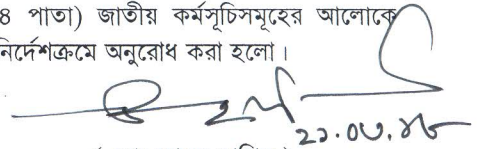 ৪ পাতা) জাতীয় কর্মসূচিসমূহের আলোকে
নির্দেশক্রমে অনুরোধ করা হলো।